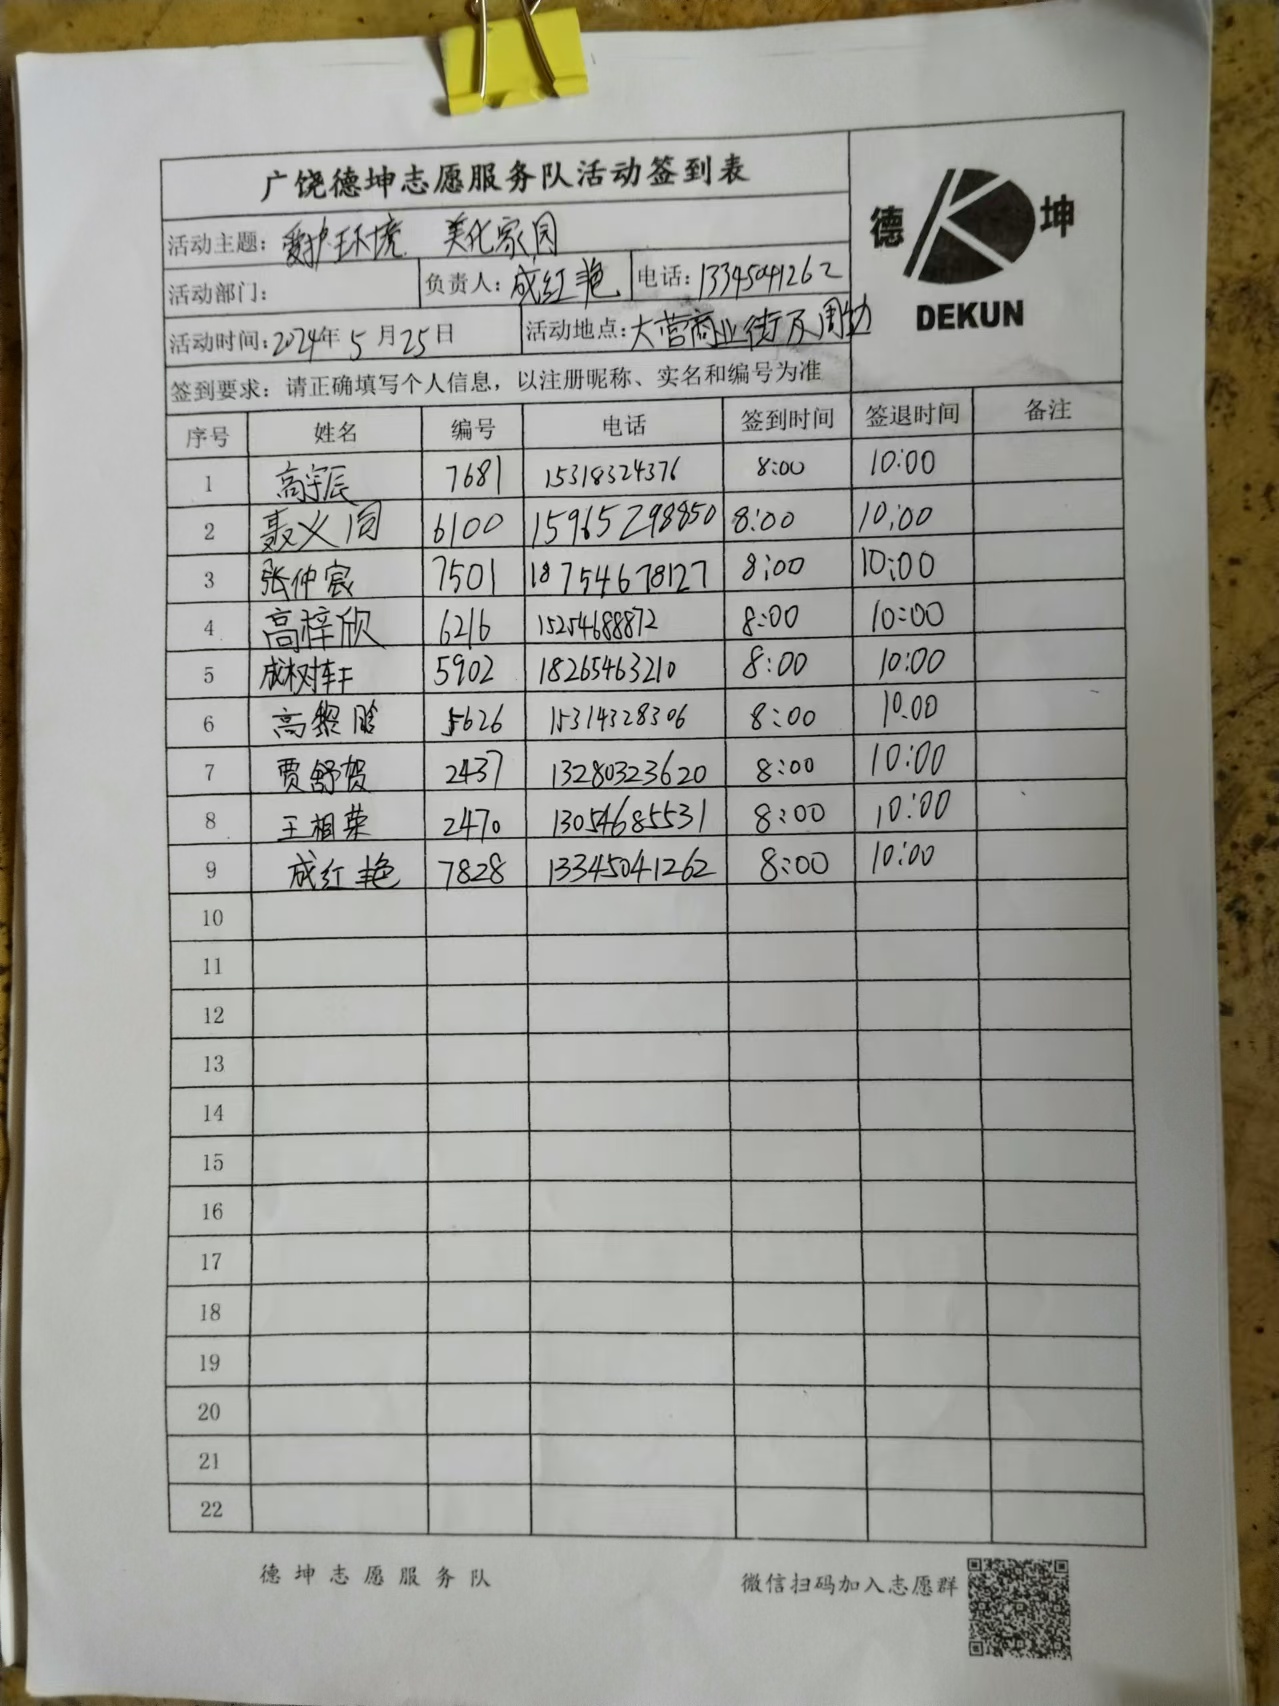 广饶德坤志愿服务队活动签到表
德 坤
DEKUN
活动主题：爱护环境 美化家园
活动部门： 负责人：成红艳 电话：13345041262
活动时间：2024年5月25日 活动地点：大营商业街及周边
签到要求：请正确填写个人信息，以注册昵称、实名和编号为准
序号 姓名 编号 电话 签到时间 签退时间 备注
1 高宇辰 7681 15318324376 8:00 10:00
2 聂义闰 6100 15965298850 8:00 10:00
3 张仲宸 7501 18754678127 8:00 10:00
4 高梓欣 6216 15254688872 8:00 10:00
5 成树轩 5902 18265463210 8:00 10:00
6 高黎晗 5626 15314328306 8:00 10.00
7 贾舒贺 2437 13280323620 8:00 10:00
8 王相荣 2470 13054685531 8:00 10:00
9 成红艳 7828 13345041262 8:00 10:00
10
11
12
13
14
15
16
17
18
19
20
21
22
德坤志愿服务队 微信扫码加入志愿群